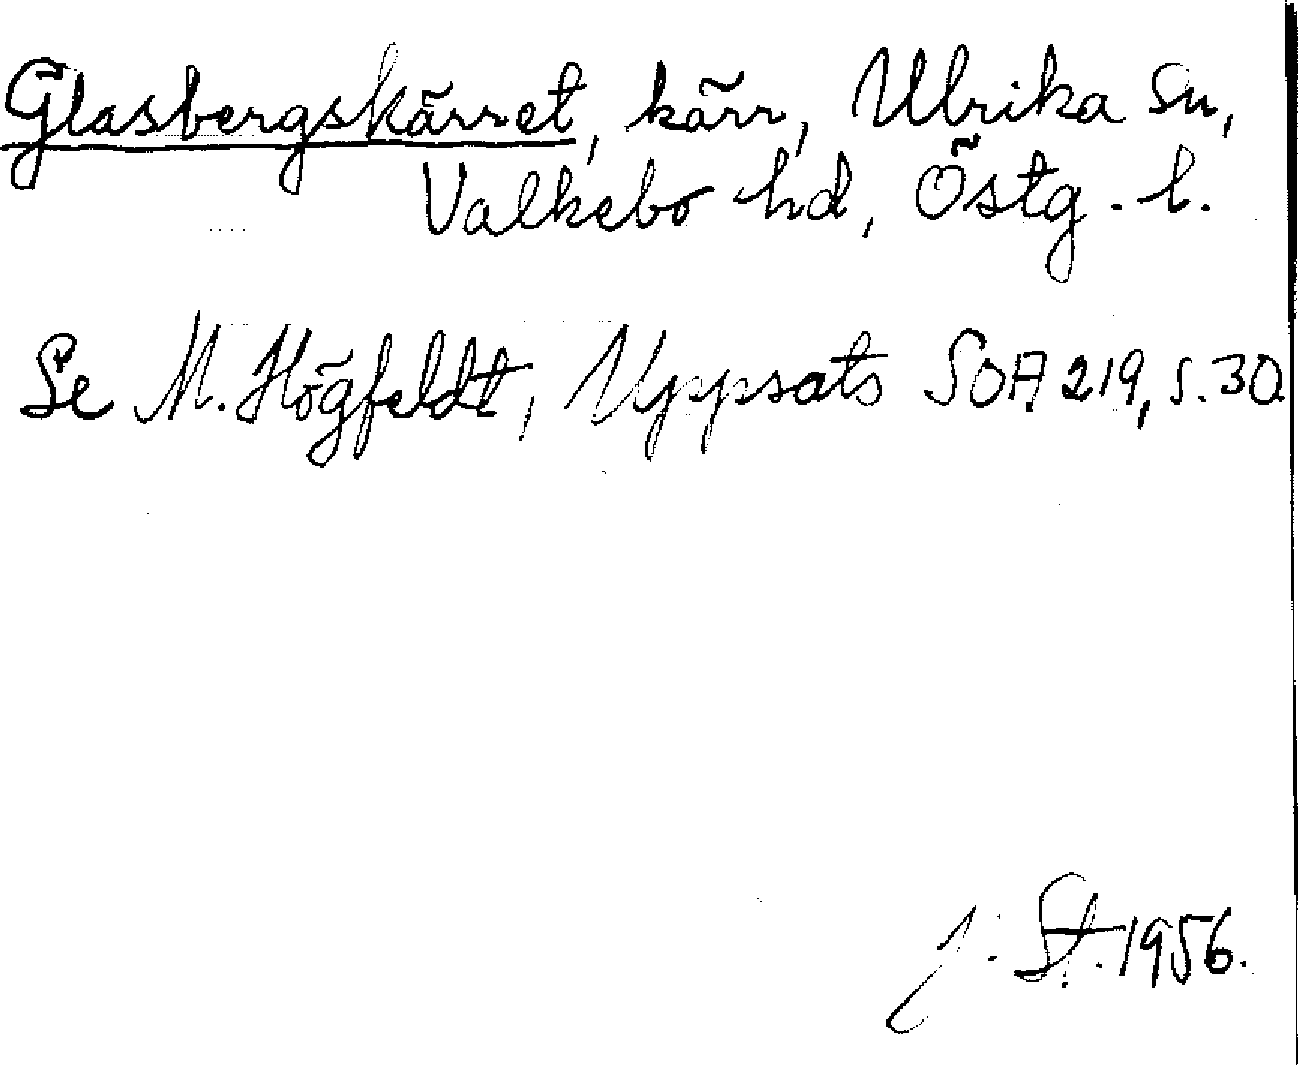 Glasbergskärret, kärr, Ulrika sn,
Valkebo hd, Östg. l.
Se M. Högfeldt, Uppsats SOA 219, s. 30.
J. St. 1956.